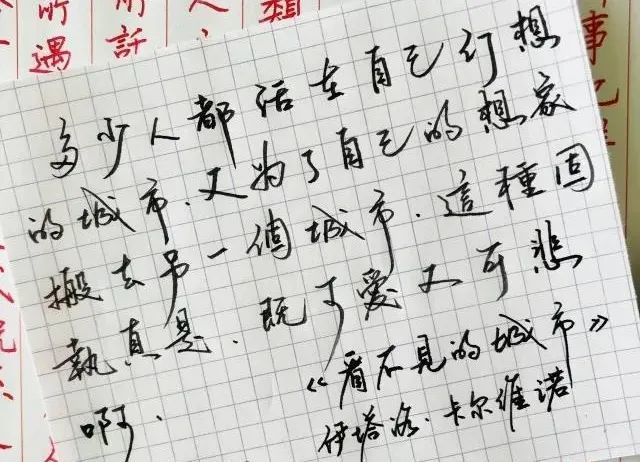 多少人都活在自己幻想
的城市.又为了自己的想象
搬去另一個城市.這種固
執真是.既可愛又可悲
啊.
《看不見的城市》
伊塔洛·卡尔维诺
事
類
所託
所遇